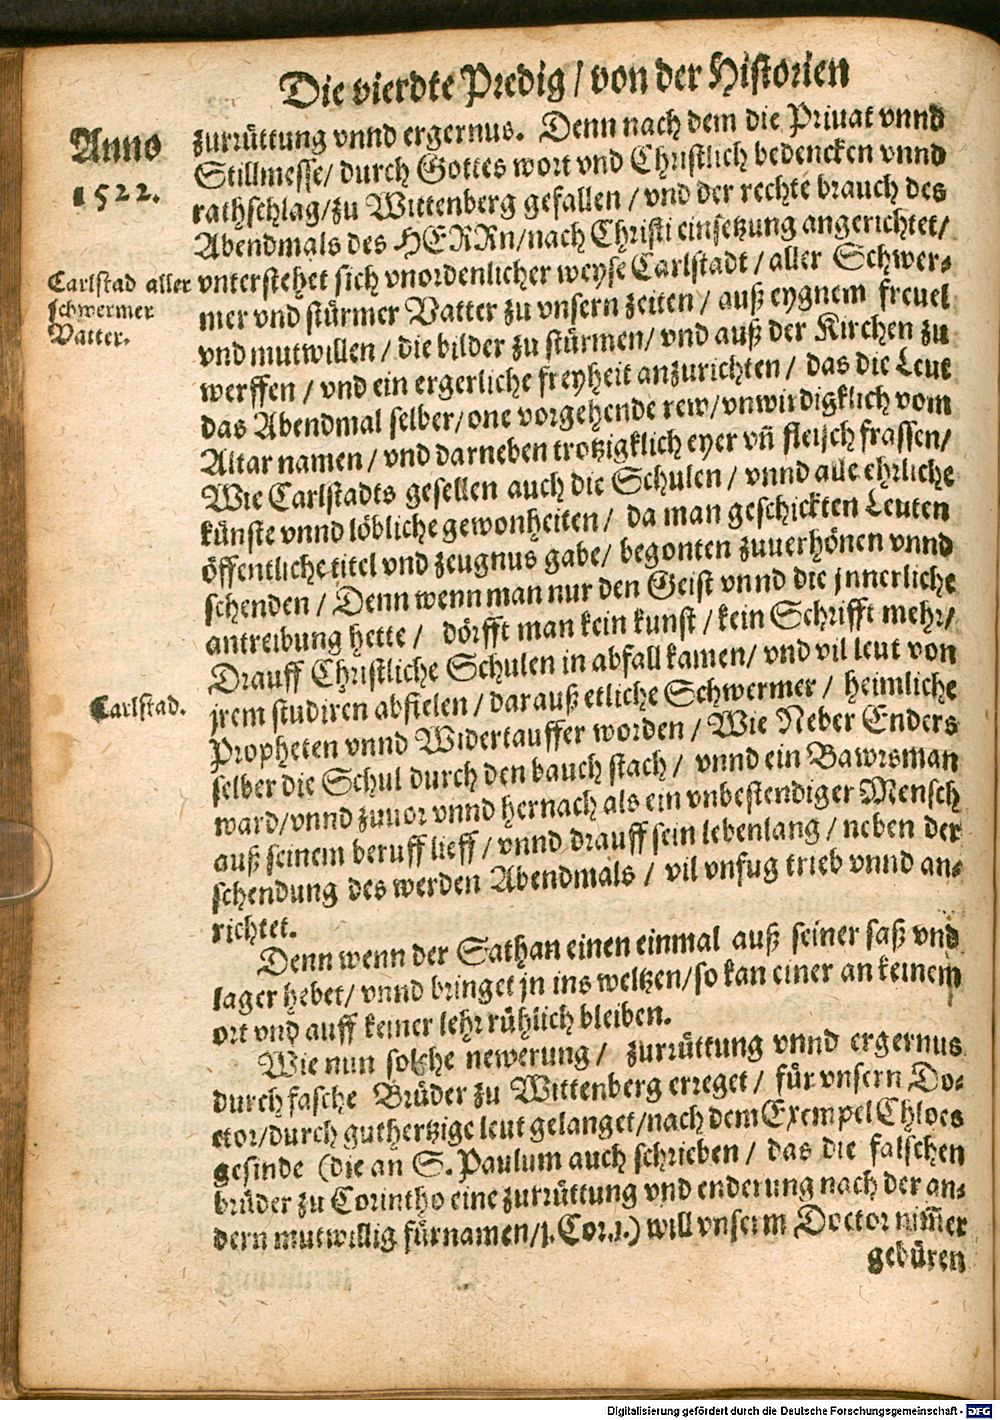 Die vierdte Predig / von der Historien
Anno
1522.
zurrüttung vnnd ergernus. Denn nach dem die Priuat vnnd
Stillmesse/ durch Gottes wort vnd Christlich bedencken vnnd
rathschlag/zu Wittenberg gefallen / vnd der rechte brauch des
Abendmals des HERRn/nach Christi einsetzung angerichtet/
Carlstad aller
schwermer
Vatter.
vnterstehet sich vnordenlicher weyse Carlstadt / aller Schwer-
mer vnd stürmer Vatter zu vnsern zeiten / auß eygnem freuel
vnd mutwillen / die bilder zu stürmen/ vnd auß der Kirchen zu
werffen / vnd ein ergerliche freyheit anzurichten / das die Leut
das Abendmal selber/one vorgehende rew/vnwirdigklich vom
Altar namen / vnd darneben trotzigklich eyer vñ fleisch frassen/
Wie Carlstadts gesellen auch die Schulen / vnnd alle ehrliche
künste vnnd löbliche gewonheiten / da man geschickten Leuten
öffentliche titel vnd zeugnus gabe/ begonten zuuerhönen vnnd
schenden / Denn wenn man nur den Geist vnnd die jnnerliche
antreibung hette / dörfft man kein kunst / kein Schrifft mehr/
Drauff Christliche Schulen in abfall kamen/ vnd vil leut von
Carlstad.
jrem studiren abfielen / darauß etliche Schwermer / heimliche
Propheten vnnd Widertauffer worden / Wie Neber Enders
selber die Schul durch den bauch stach / vnnd ein Bawrsman
ward/vnnd zuuor vnnd hernach als ein vnbestendiger Mensch
auß seinem beruff lieff / vnnd drauff sein lebenlang / neben der
schendung des werden Abendmals / vil vnfug trieb vnnd an-
richtet.
Denn wenn der Sathan einen einmal auß seiner saß vnd
lager hebet/ vnnd bringet jn ins weltzen/so kan einer an keinem
ort vnd auff keiner lehr rühlich bleiben.
Wie nun solche newerung / zurrüttung vnnd ergernus
durch fasche Brüder zu Wittenberg erreget / für vnsern Do-
ctor/durch guthertzige leut gelanget/nach dem Exempel Chloes
gesinde (die an S. Paulum auch schrieben / das die falschen
brüder zu Corintho eine zurrüttung vnd enderung nach der an-
dern mutwillig fürnamen/j.Cor.j.) will vnserm Doctor nim̃er
gebüren
Digitalisierung gefördert durch die Deutsche Forschungsgemeinschaft - DFG